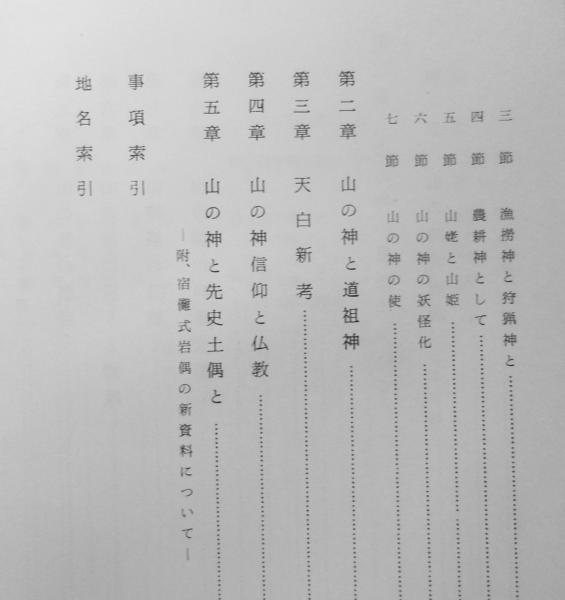 三節 漁撈神と狩猟神と……
四節 農耕神として……
五節 山姥と山姫……
六節 山の神の妖怪化……
七節 山の神の使……
第二章 山の神と道祖神……
第三章 天白新考……
第四章 山の神信仰と仏教……
第五章 山の神と先史土偶と……
―附、宿儺式岩偶の新資料について―
事項索引
地名索引